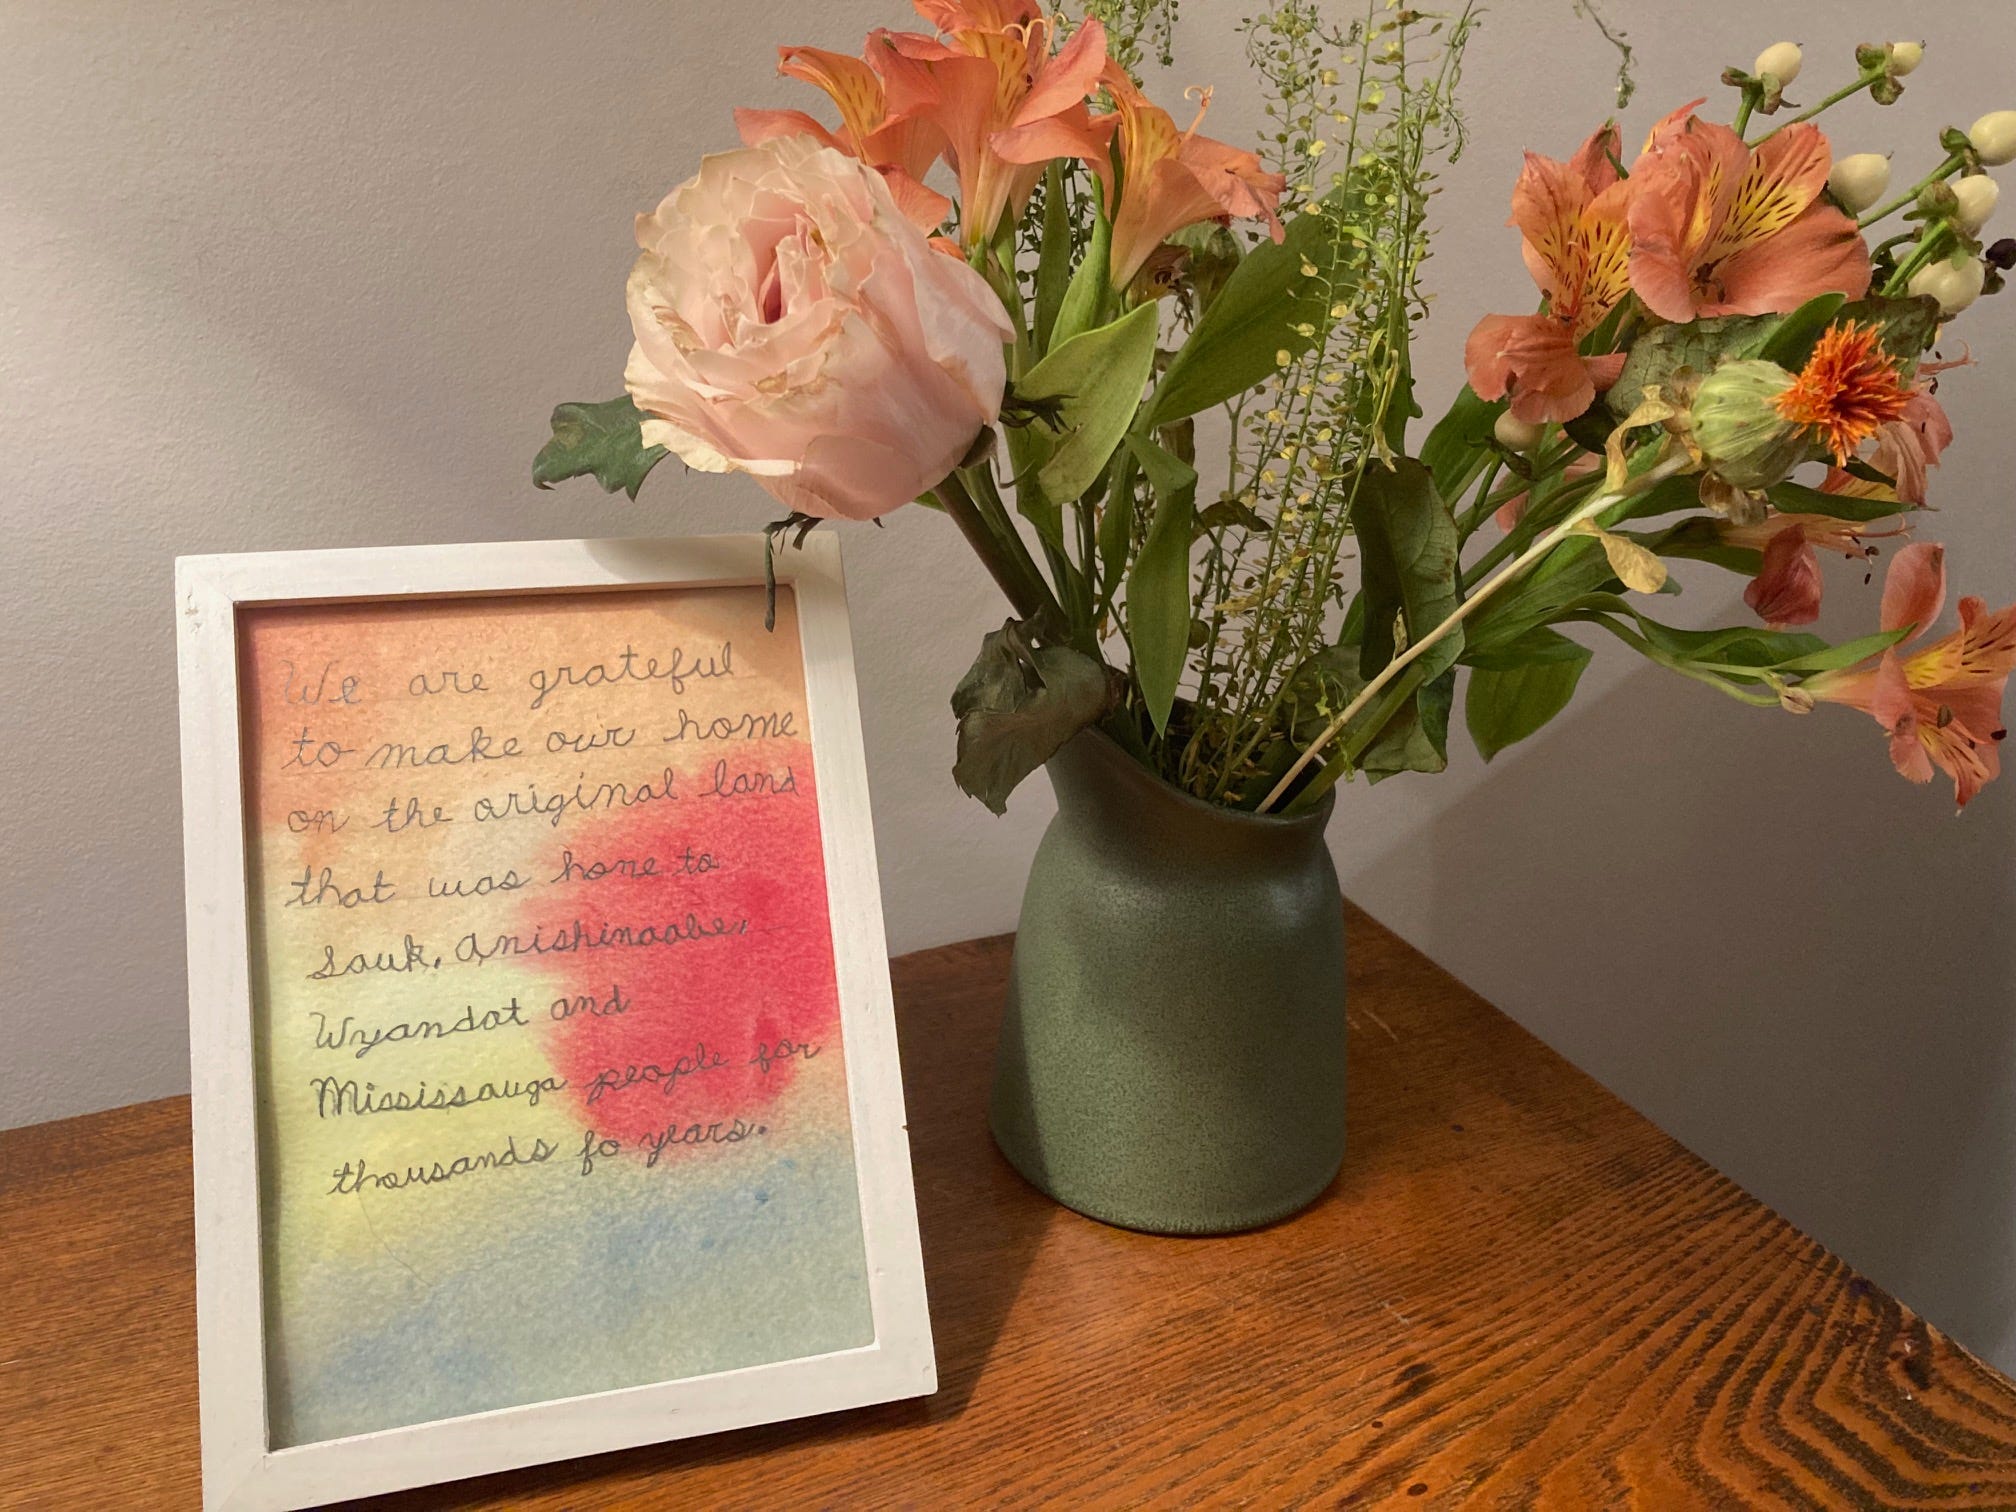 We are grateful
to make our home
on the original land
that was home to
Sauk, Anishinaabe,
Wyandot and
Mississauga people for
thousands fo years.